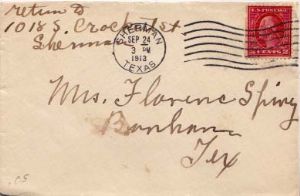 return to
1018 S. Crockett st
Sherman
SHERMAN
SEP 24
3 PM
1913
TEXAS
U.S. POSTAGE
2 CENTS 2
Mrs. Florence Spivy
Bonham
Tex